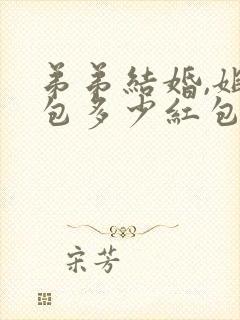 弟弟結婚,姐
包多少紅包
宋芳